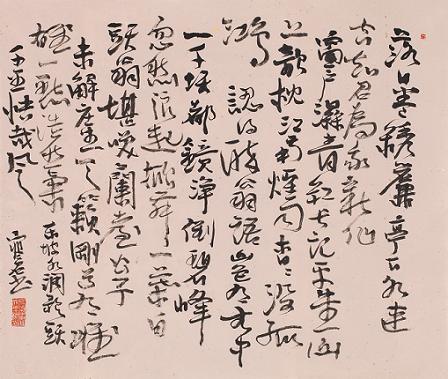 落日繡簾捲亭下水連
空知君為我新作
窗户濕青紅長記平山堂
上欹枕江南煙雨杳杳沒孤
鴻認得醉翁語山色有無中
一千頃都鏡淨倒碧峰
忽然浪起掀舞一葉白
頭翁堪笑蘭臺公子
未解莊生天籟剛道有雌
雄一點浩然氣
千里快哉風
東坡水調歌頭